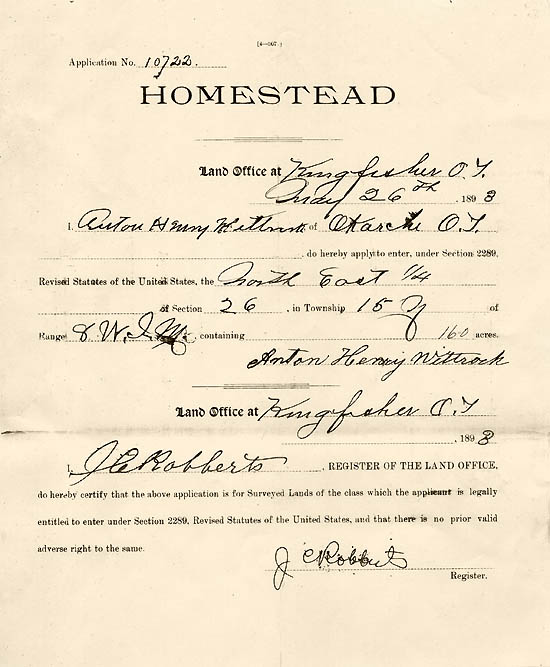 [4—007.]
Application No. 10722.
HOMESTEAD
Land Office at Kingfisher O.T.
May 26th, 1898
I, Anton Henry Wittrock of Okarche O.T.
, do hereby apply to enter, under Section 2289,
Revised Statutes of the United States, the North East 1/4
of Section 26, in Township 15 N of
Range 8 W.I.M., containing 160 acres.
Anton Henry Wittrock
Land Office at Kingfisher O.T
, 1898
I, J C Robberts, REGISTER OF THE LAND OFFICE,
do hereby certify that the above application is for Surveyed Lands of the class which the applicant is legally
entitled to enter under Section 2289, Revised Statutes of the United States, and that there is no prior valid
adverse right to the same.
J C Robberts
Register.